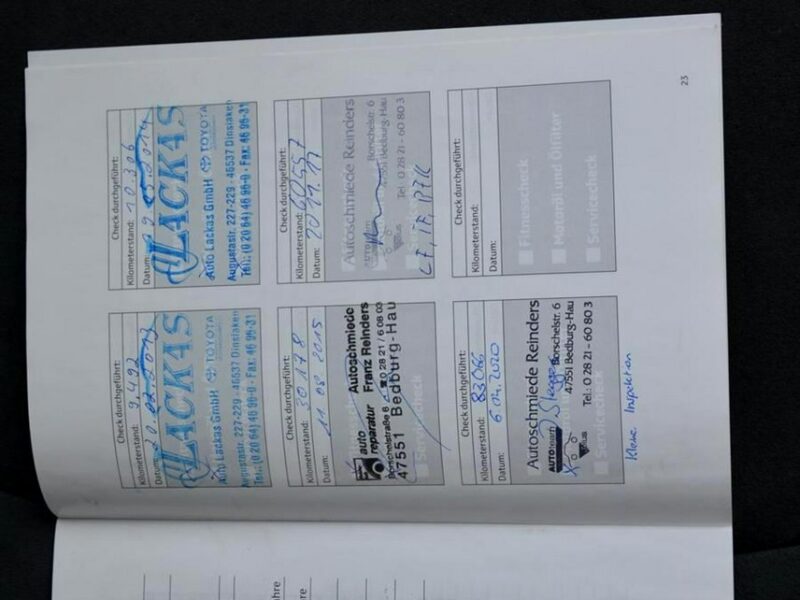 Check durchgeführt:
Kilometerstand: 9.492
Datum: 20.02.2013
LACKAS
Auto Lackas GmbH TOYOTA
Augustastr. 227-229 · 46537 Dinslaken
Tel.: (0 20 64) 46 96-0 · Fax: 46 96-31
Check durchgeführt:
Kilometerstand: 10.306
Datum: 2014
LACKAS
Auto Lackas GmbH TOYOTA
Augustastr. 227-229 · 46537 Dinslaken
Tel.: (0 20 64) 46 96-0 · Fax: 46 96-31
Check durchgeführt:
Kilometerstand: 30178
Datum: 2015
auto reparatur
Autoschmiede
Franz Reinders
Borschelstraße 6 0 28 21 / 6 08 03
47551 Bedburg-Hau
Servicecheck
Check durchgeführt:
Kilometerstand: 60557
Datum:
Autoschmiede Reinders
Borschelstr. 6
47551 Bedburg-Hau
Tel. 0 28 21 - 60 80 3
Check durchgeführt:
Kilometerstand: 83066
Datum: 2020
Autoschmiede Reinders
AUTOteam Borschelstr. 6
plus 47551 Bedburg-Hau
Tel.: 0 28 21 - 60 80 3
Servicecheck
Kleine Inspektion
Check durchgeführt:
Kilometerstand:
Datum:
Fitnesscheck
Motoröl und Ölfilter
Servicecheck
23